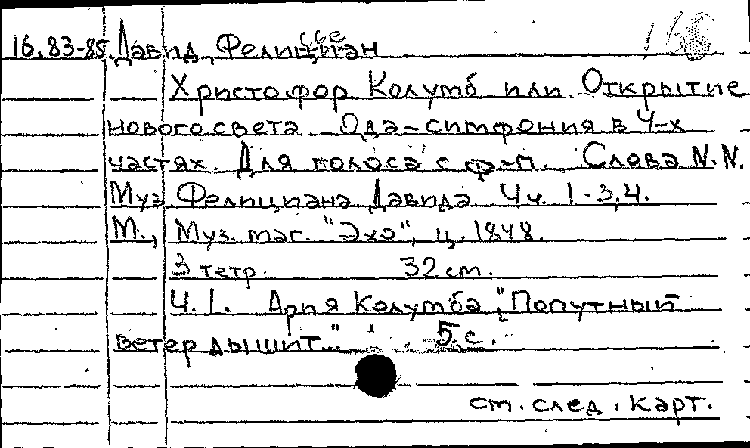 16.83-85 Давид, Фелициан
168
Христофор Колумб или Открытие
нового света. Ода-симфония в 4-х
частях. Для голоса с ф-п. Слова N.N.
Муз. Фелициана Давида. Чч. 1-3,4.
М., Муз. маг. "Эхо", ц. 1848.
3 тетр. 32 см.
Ч. 1. Ария Колумба "Попутный
ветер дышит" . 5 с.
см. след. карт.